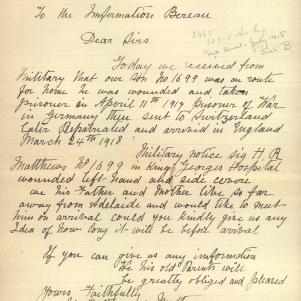 To the Information Bereau
Dear Sirs
Today we received from
Military that our Son No 1699 was on route
for home he was wounded and taken
prisoner on Appril 11th 1917 Prisoner of War
in Germany then sent to Switzerland
Later Repatriated and arrived in England
March 24th 1918
Military notice sig H. R
Matthews No 1699 in King Georges Hospital
wounded left Hand and side severe
we his Father and Mother live so far
away from Adelaide and would like to meet
him on arrival could you kindly give us any
Idea of how long it will be before arrival
If you can give us any information
We his old Parents will
be greatly obliged and pleased
Yours Faithfully